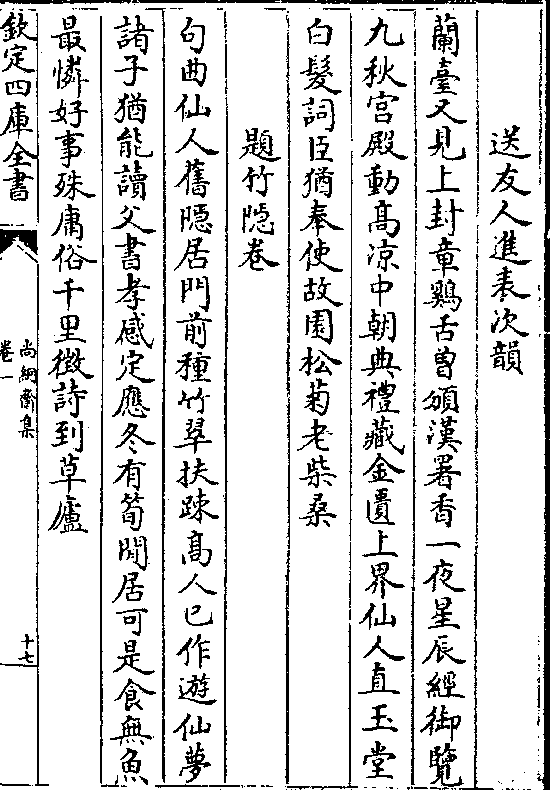 送友人進表次韻
蘭臺又見上封章鷄舌曽頒漢署香一夜星辰經御覽
九秋宫殿動髙凉中朝典禮藏金匱上界仙人直玉堂
白髮詞臣猶奉使故園松菊老柴桑
題竹隠卷
句曲仙人舊隠居門前種竹翠扶踈髙人已作遊仙夢
諸子猶能讀父書孝感定應冬有筍閒居可是食無魚
最憐好事殊庸俗千里徴詩到草廬
欽定四庫全書
尚絅齋集
卷一
十七